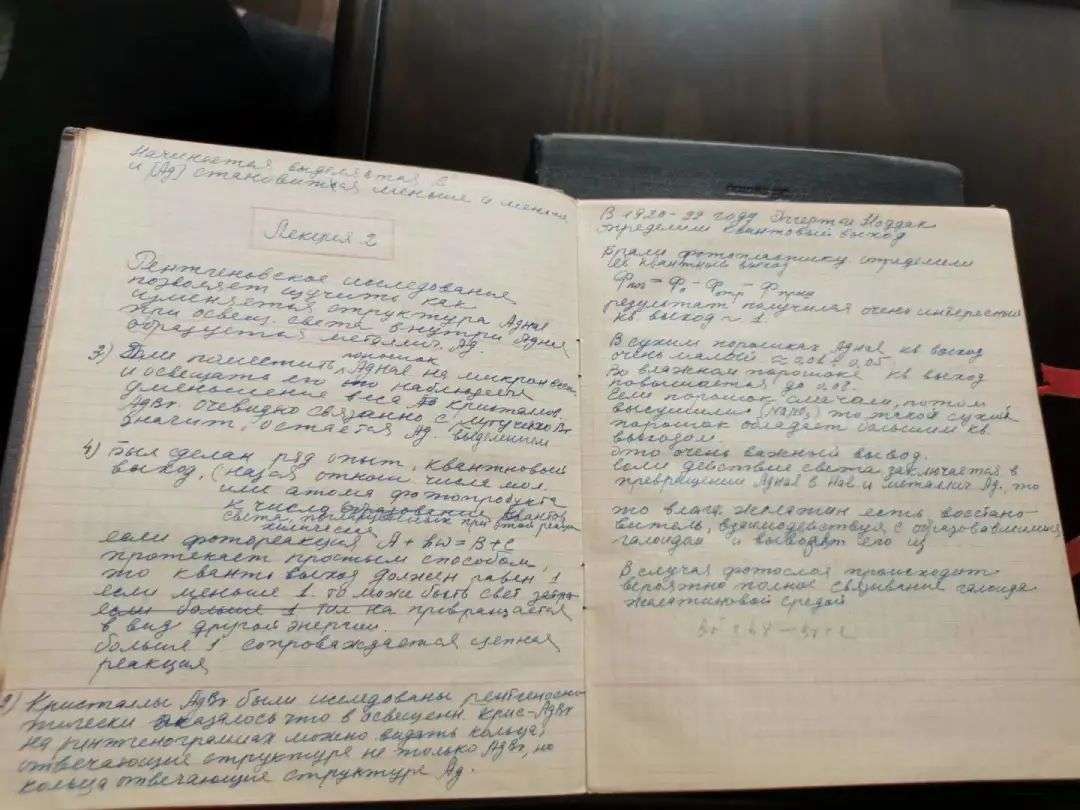 начинается выделяться
и [Ag] становится меньше и меньше
Лекция 2
Рентгеновское исследования
позволяет изучить как
изменяется структура AgHal
при освещ. света внутри AgHal
образуется металлич. Ag.
3) Если поместить порошок AgHal на микровесы
и освещать его то наблюдается
уменьшение веса кристаллов
AgBr очевидно связанно с Br
значит, остается Ag. выделенным
4) Был сделан ряд опыт. квантновый
выход. (назыв. отнош числе мол.
или атома фотопродукта
к числу образование квантов
света поглощенных при этой реак
химическ
если фотореакция A + hω = B + C
протекает простым способом,
то квантов выход должен равен 1
если меньше 1. то може быть свет
если больше 1 то превращается
в вид другой энергии.
больше 1 сопровождается цепная
реакция
2) Кристаллы AgBr были исследованы рентгеноско-
пически оказалось что в освещенн. крис-AgBr
на рентженограммах можно видать кольца,
отвечающие структуре не только AgBr, но
кольца отвечающие структуре Ag.
В 1920-22 году Эггерт и Ноддак
определили квантовый выход
Брали фотопластинку определили
её квантный выход
результат получился очень интересный
кв. выход ~ 1
В сухим порошках AgHal кв. выход
очень малый
Во влажном порошоке кв выход
повышается до 0,08.
Если порошок смачали, потом
высушили (NaNO₂) то такой сухий
порошок обладает большим кв.
выходом.
Это очень важный вывод.
Если действие света заключается в
превращении AgHal в Hal и металлич Ag, то
то влаг. желатин есть восстано-
витель, взаимодействуя с образовавшимся
галоидом и выводят его из
В случая фотослоя происходит
вероятно полное связывание галоида
желатиновой средой